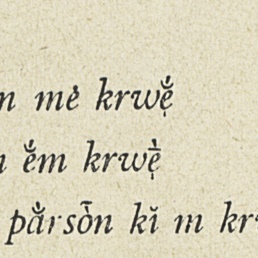 n mė̀ krwę̆́
n ĕ́m krwę̄̀
pắrsȍ̄n kĭ m kr